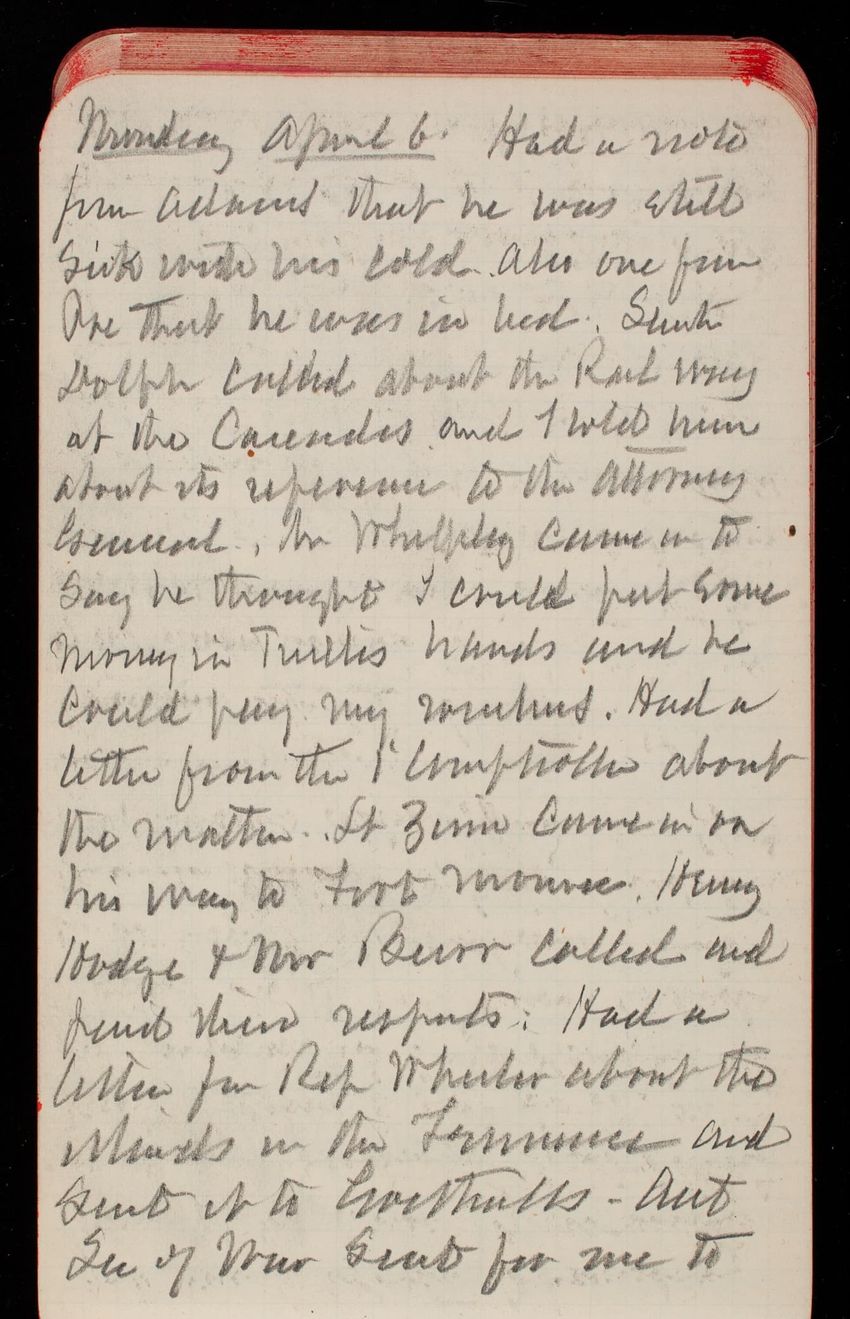 Monday April 6. Had a note
from Adams that he was still
sick with his cold. Also one from
that he was in bed. Senator
Dolph called about the Rail way
at the Cascades and I told him
about its reference to the Attorney
General. Mr Whelpley came in to
say he thought I could put some
money in hands and he
could pay my vouchers. Had a
letter from the 1' Comptroller about
the matter. Lt Zinn came in on
his way to Fort Monroe. Henry
Hodge & Mr Burr called and
paid their respects. Had a
letter for Rep Wheeler about the
Islands in the Tennessee and
sent it to - Act
Sec of War sent for me to